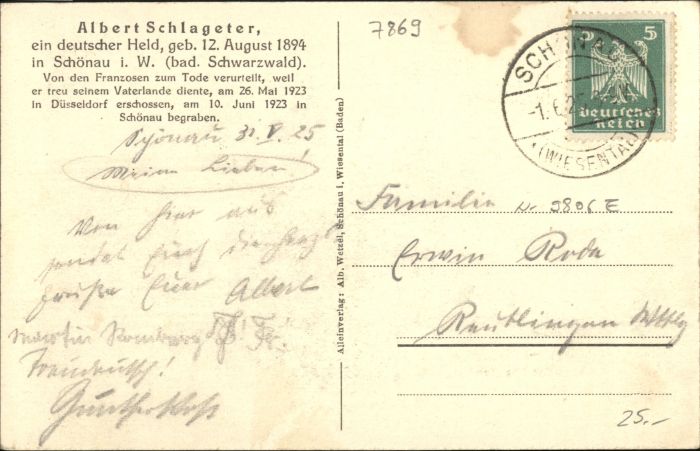 Albert Schlageter,
ein deutscher Held, geb. 12. August 1894
in Schönau i. W. (bad. Schwarzwald).
Von den Franzosen zum Tode verurteilt, weil
er treu seinem Vaterlande diente, am 26. Mai 1923
in Düsseldorf erschossen, am 10. Juni 1923 in
Schönau begraben.
Schönau 31 V. 25
Meine Lieben!
Von hier aus
sendet Euch die
Grüße Euer Albert
Martin
Treudeutsch!
Alleinverlag: Alb. Wetzel, Schönau i. Wiesental (Baden)
7869
5
Deutsches
Reich
SCHÖNAU
-1.6.25
(WIESENTAL)
Familie
Erwin Rode
Reutlingen Wttbg
25.-